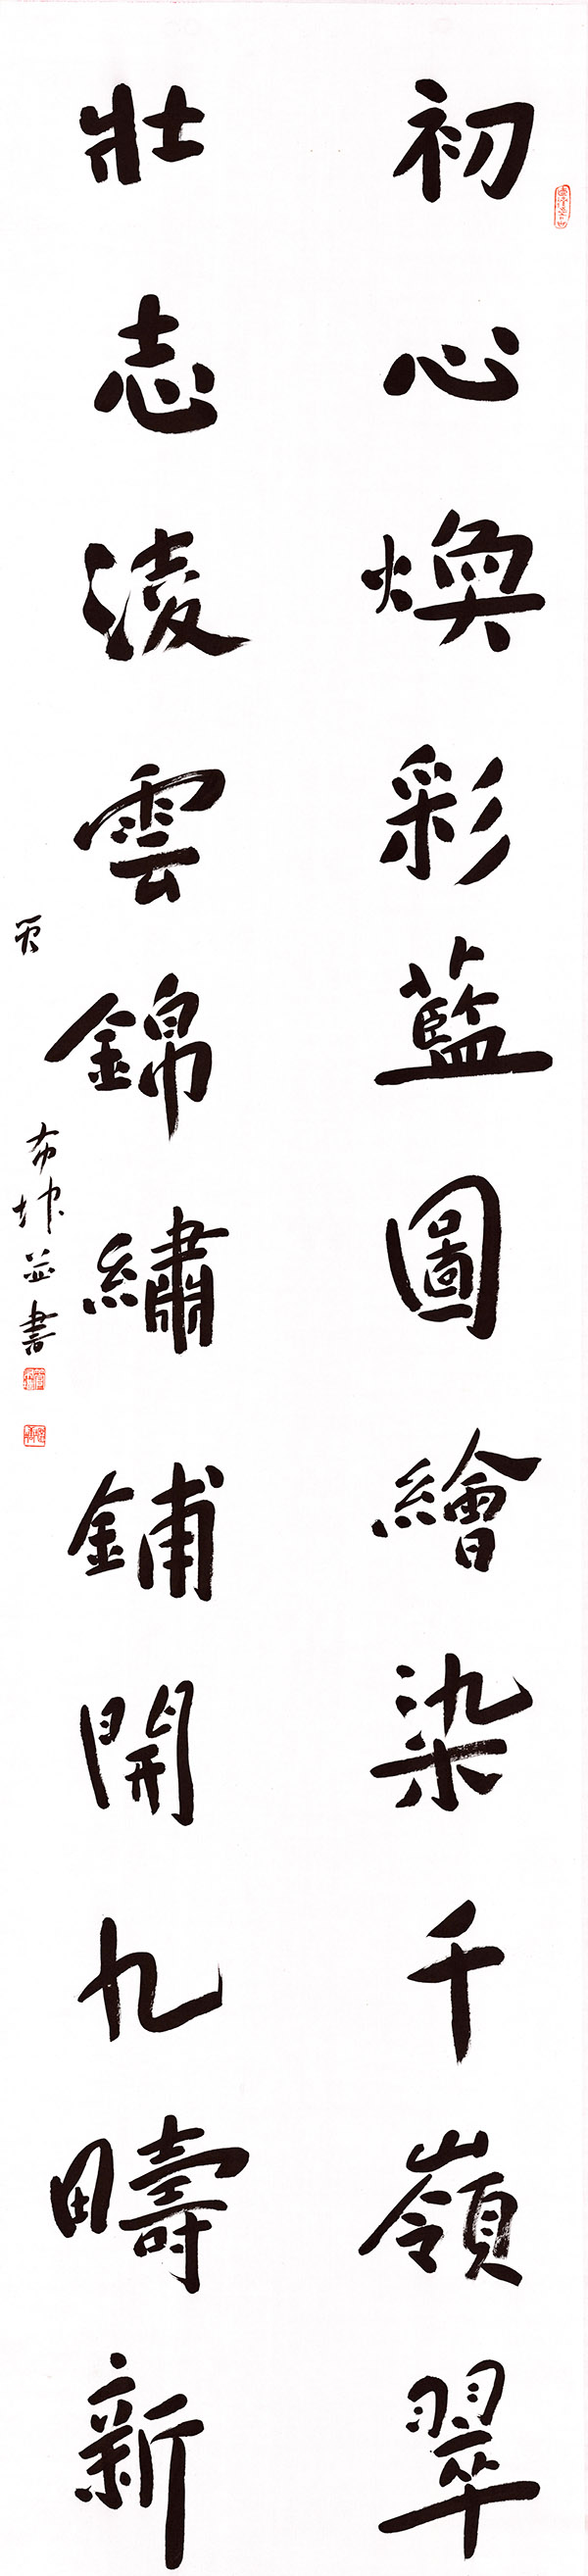 初心煥彩藍圖繪染千嶺翠
壯志淩雲錦繡鋪開九疇新
並書